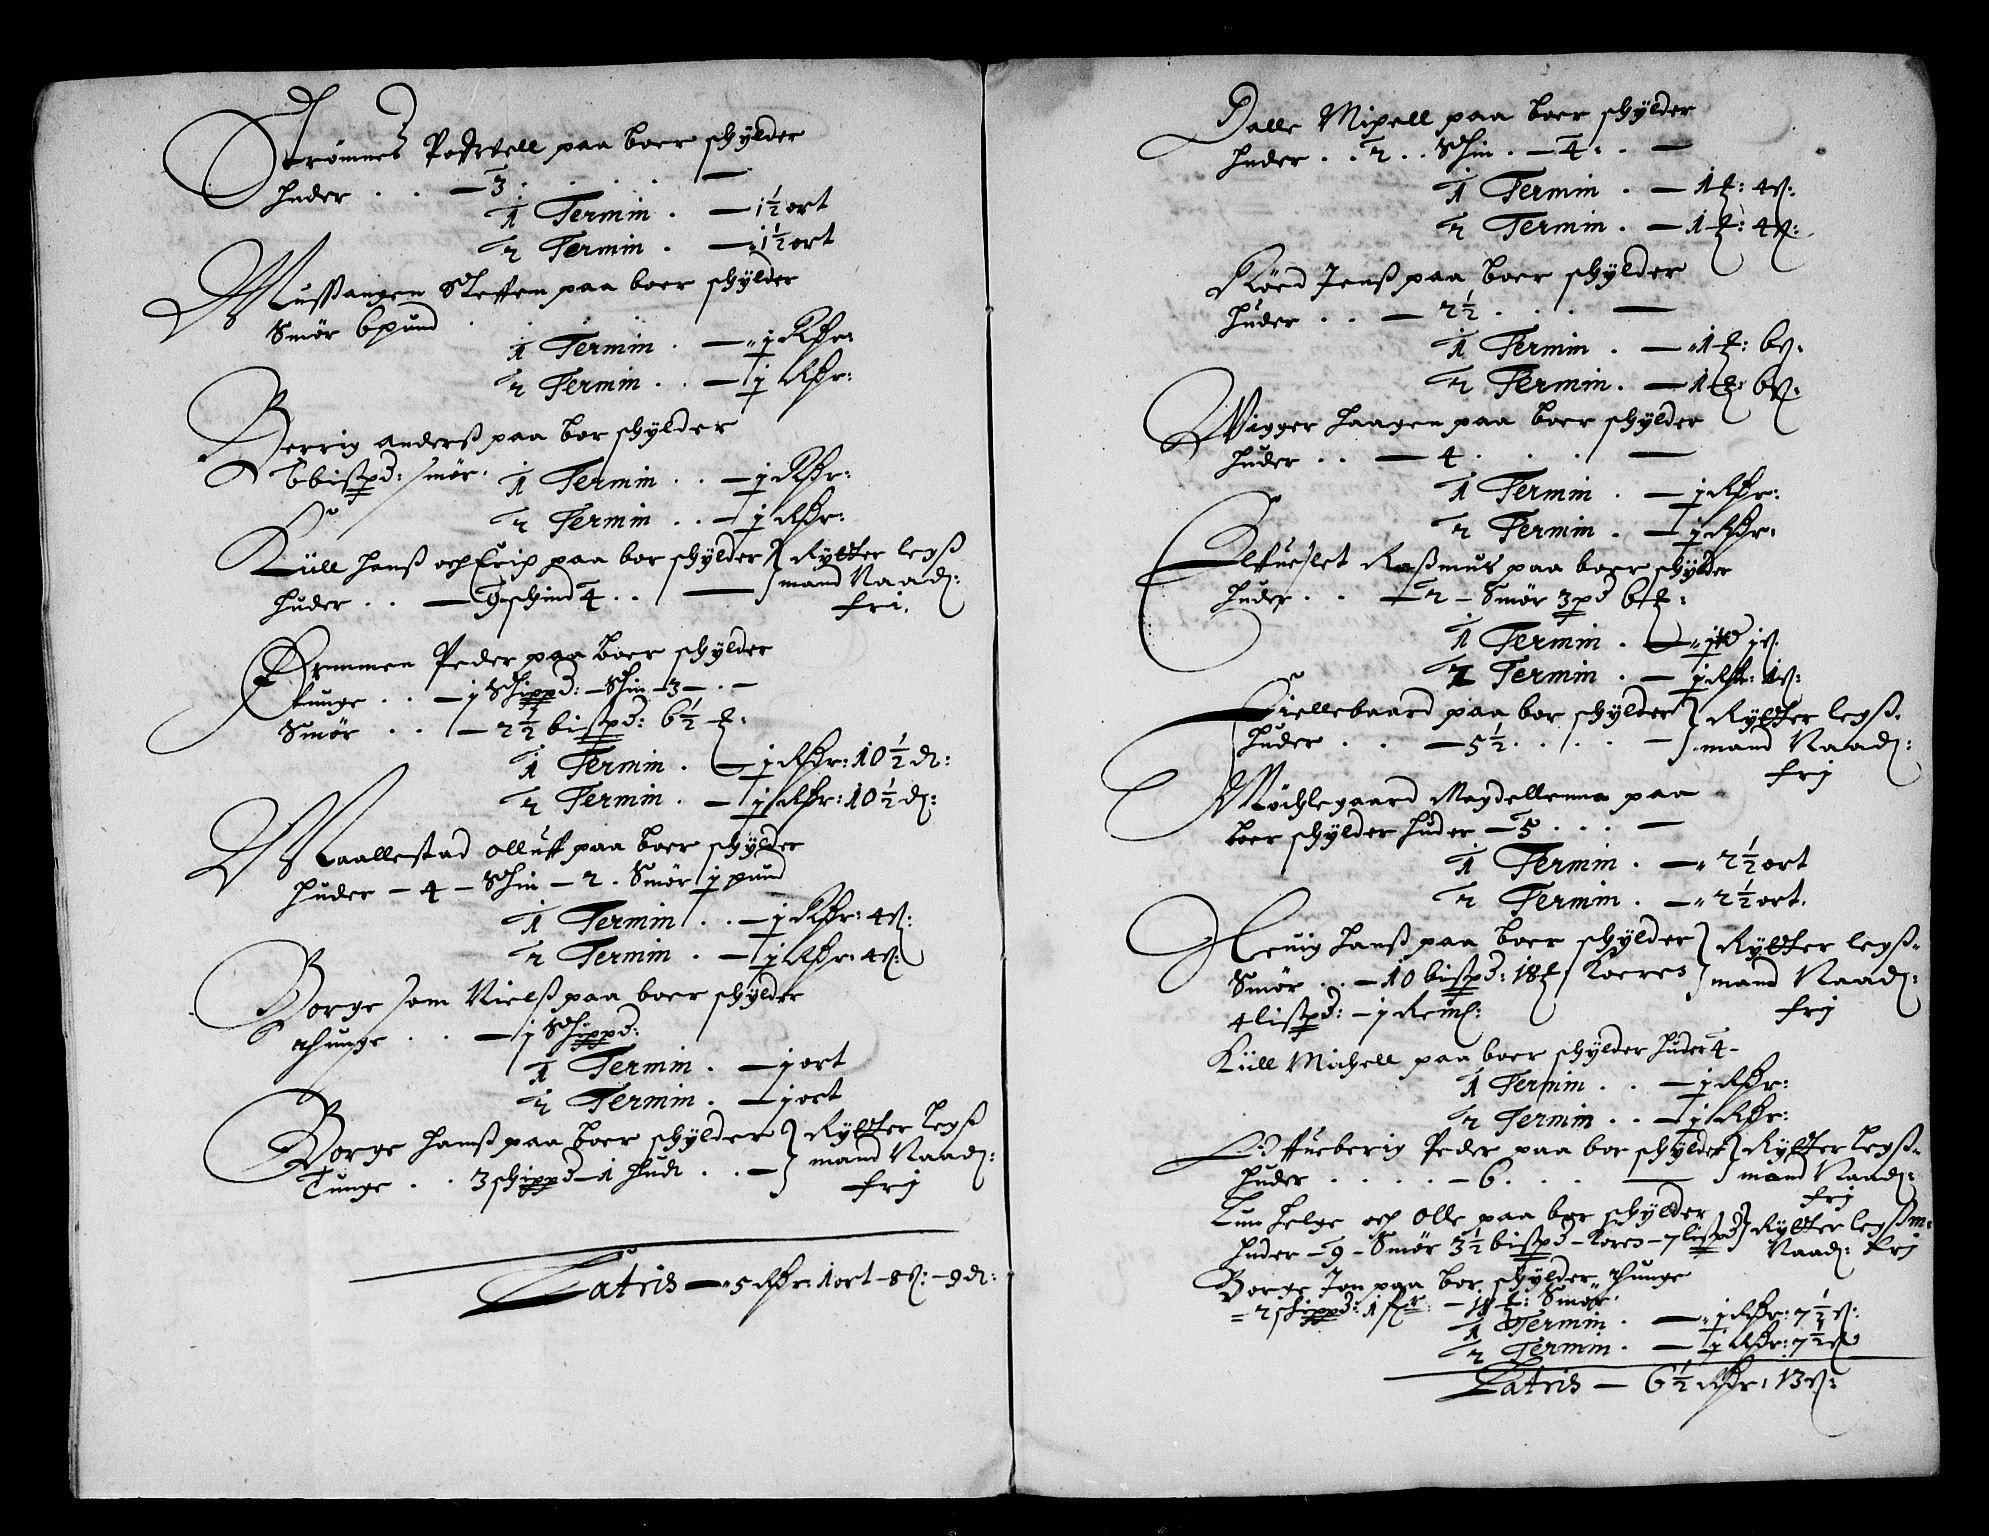 Strømnes Poffuell paa boer schÿlder
huder . . — 3 . . . . —
1 Termin . — 1½ ort
2 Termin . — 1½ ort
Mussangen Steffen paa boer schÿlder
Smør 6 pund . . . .
1 Termin . — j Rdr:
2 Termin . . — j Rdr:
Berrig anderß paa bor schÿlder
6 bißpd: smør . 1 Termin . . — j Rdr:
2 Termin . . — j Rdr:
Kiill Hanß och Erich paa bor schÿlder } Rÿtter legß
huder . . — 9 schind 4 . . — } mand Naadl:
fri.
Drammen Peder paa boer schÿlder
tunge . . — j Schippd: — Schin — 3 — . —
Smør . . — 2½ bißpd: 6½ ℔:
1 Termin . — j Rdr: 10½ dl:
2 Termin . — j Rdr: 10½ dl:
Maallestad olluff paa boer schÿlder
huder — 4 — Schin — 2 . Smør j pund
1 Termin . . — j Rdr: 4 ß:
2 Termin . — j Rdr: 4 ß:
Borge som Nielß paa boer schÿlder
thunge . . — j Schippd:
1 Termin . — j ort
2 Termin . — j ort
Borge Hanß paa boer schÿlder } Rÿtter legß
Tunge . . 3 schippd — 1 hud . . — } mand Naadl:
frij
Latris — 5 Rdr: 1 ort — 8 ß: — 9 dl:
Dalle Michell paa boer schÿlder
huder . . 2 . . Schin . — 4 : . —
1 Termin . — 1 ℔: 4 ß:
2 Termin . — 1 ℔: 4 ß:
Röed Jenß paa boer schÿlder
huder . . — 2½ . . . —
1 Termin . — 1 ℔: 6 ß:
2 Termin . — 1 ℔: 6 ß:
Wigger Haagen paa boer schÿlder
huder . . — 4 . . . —
1 Termin . — j Rdr:
2 Termin . — j Rdr:
Elffueslet Raßmus paa boer schÿlder
huder . . — 2 — Smør 3 pd 6 ℔:
1 Termin . — j Rd j ß:
2 Termin . — j Rdr: 1 ß:
Giellebaard paa bor schÿlder } Rÿtter legß.
huder . . — 5½ . . . . — } mand Naadl:
frij
Möchlegaard Magdellenna paa
boer schÿlder huder — 5 . . . —
1 Termin . — 2½ ort
2 Termin . — 2½ ort.
Heuig Hanß paa boer schÿlder } Rÿtter legß
Smør . . — 10 bißpd: 18 ℔ Koeres } mand Naadl:
4 lißpd: — j Reml: frij
Kiill Michell paa boer schÿlder huder 4 —
1 Termin . . — j Rdr:
2 Termin . . — j Rdr:
Offueberig Peder paa bor schÿlder } Rÿtter legß
huder . . . . — 6 . . . — } mand Naadl:
frij
Lun Helge och Olle paa bor schÿlder } Rÿtter legß m:
huder — 9 — Smør 3½ bißpd — Kores — 7 lißpd } Naadl: frij
Borge Jon paa bor schÿlder thunge
= 2 schippd: 1 — 18 ℔: Smør
1 Termin . — j Rdr: 7½ ß:
2 Termin . — j Rdr: 7½ ß
Latris — 6½ Rdr: 13 ß: